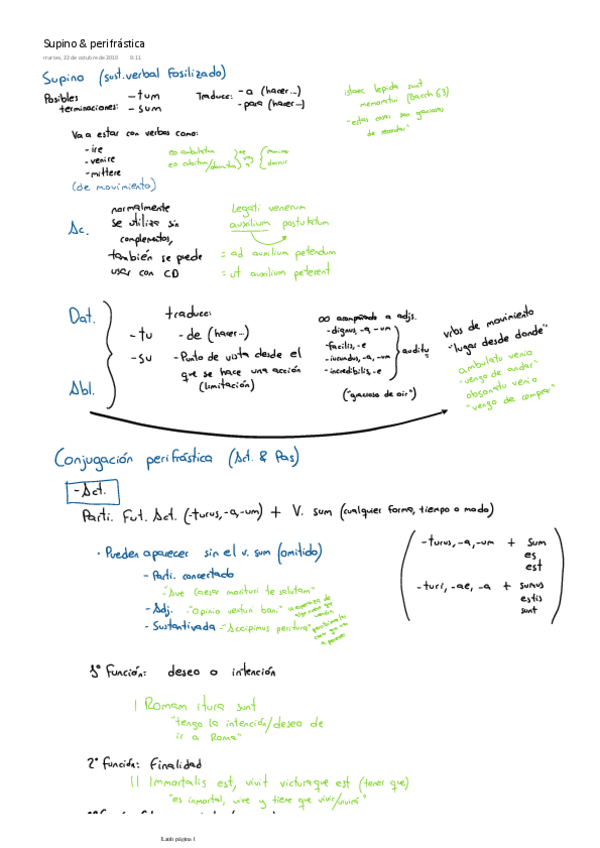 Supino & perifrástica
martes, 22 de octubre de 2019 9:11
Supino (sust. verbal fosilizado)
Posibles terminaciones:
- tum
- sum
Traducc:
- a (hacer...)
- para (hacer...)
istaec lepida sunt
memoratui (Bacch 63)
Va a estar con verbos como:
- ire
- venire
- mittere
(de movimiento)
eo ambulatum
eo cubitum/dormitum
Ac.
normalmente
se utiliza sin
complementos,
también se puede
usar con CD
Legati venerum
auxilium postulatum
= ad auxilium petendum
= ut auxilium peterent
Dat.
Abl.
- tu
- su
traducc:
- de (hacer...)
- Punto de vista desde el
que se hace una acción
(limitación)
acompañando a adjs.
- dignus, -a, -um
- facilis, -e
- iucundus, -a, -um
- incredibilis, -e
auditu
("gracioso de oir")
vbos de movimiento
"lugar desde donde"
ambulatu venio
"vengo de andar"
obsonatu venio
"vengo de comprar"
Conjugación perifrástica (Act. & Pas)
- Act.
Parti. Fut. Act. (-turus, -a, -um) + V. sum (cualquier forma, tiempo o modo)
· Pueden aparecer sin el v. sum (omitido)
- Parti. concertado
"Ave Caesar morituri te salutam"
- Adj. "Opinio venturi boni"
- Sustantivada "Accipimus peritura"
-turus, -a, -um + sum
es
est
-turi, -ae, -a + sumus
estis
sunt
1ª Función: deseo o intención
| Romam itura sunt
"tengo la intención/deseo de
ir a Roma"
2ª Función: Finalidad
|| Immortalis est, vivit victuraque est (tener que)
"es inmortal, vive y tiene que vivir/vivirá"
Latín página 1